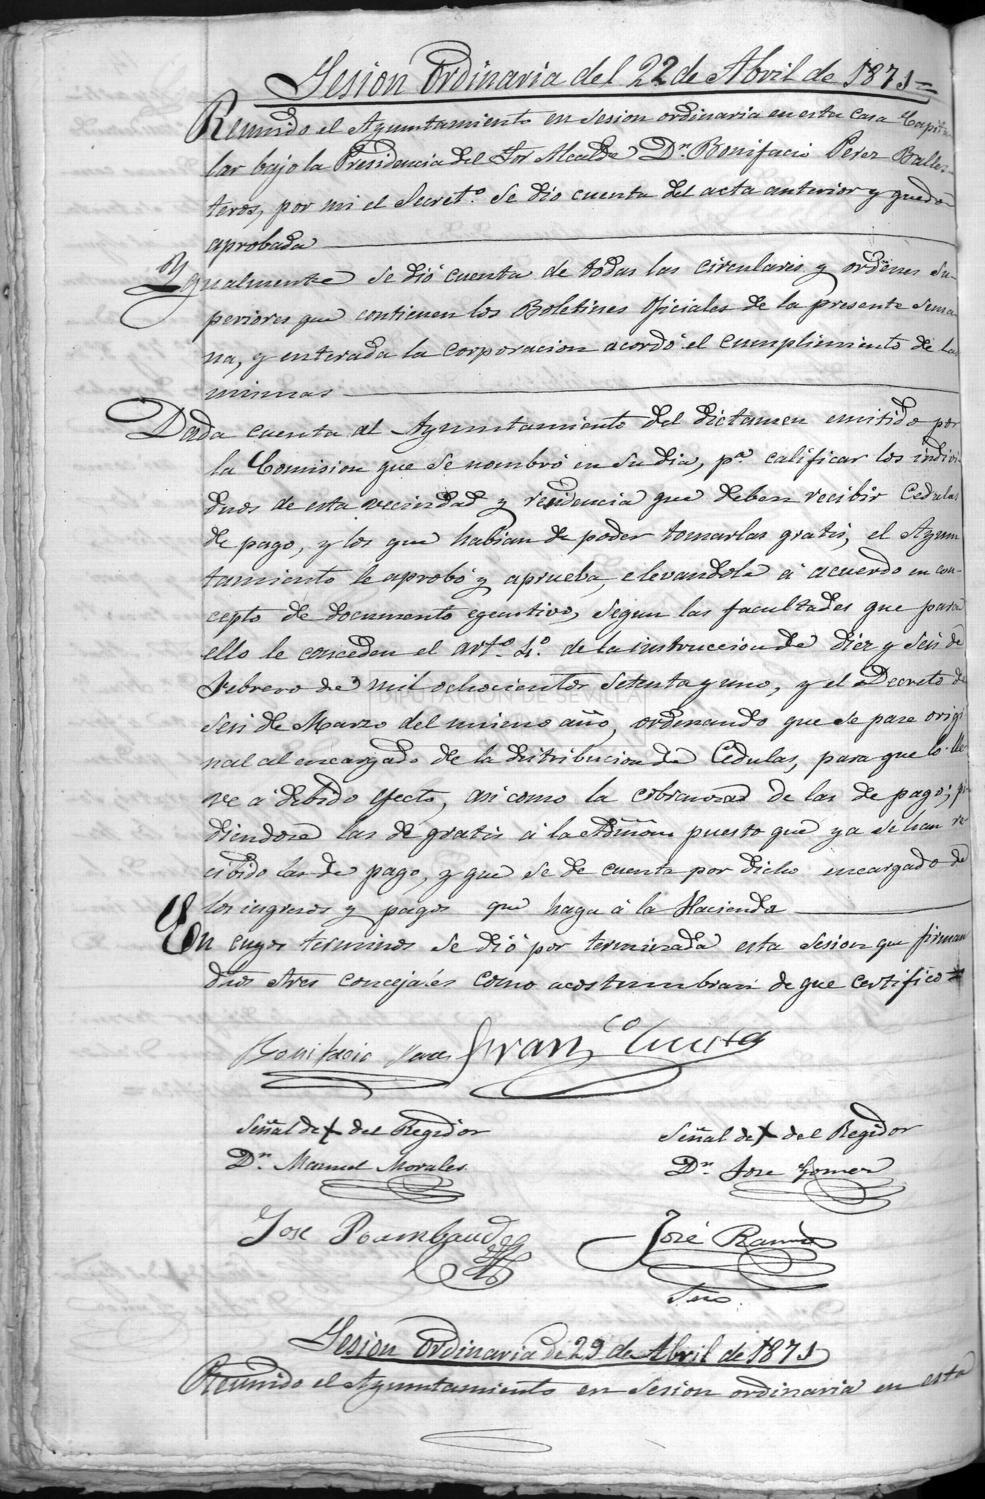 Sesion Ordinaria del 22 de Abril de 1871=
Reunido el Ayuntamiento en sesion ordinaria en esta casa Capitu
lar bajo la Presidencia del Sor Alcalde Dn. Bonifacio Perez Balles-
teros, por mi el Secreto. se dió cuenta del acta anterior y quedó
aprobada
Ygualmente se dió cuenta de todas las circulares y ordenes Su-
periores que contienen los Boletines Oficiales de la presente Sema-
na, y enterada la corporacion acordó el cumplimiento de las
mismas
Dada cuenta al Ayuntamiento del dictamen emitido por
la Comision que se nombró en su dia, pa. calificar los indivi-
duos de esta vecindad y residencia que deben recibir Cedulas
de pago, y los que habian de poder tomarlas gratis, el Ayun
tamiento le aprobó y aprueba, elevandola á acuerdo en con-
cepto de documento egecutivo, segun las facultades que para
ello le conceden el arto. 4o. de la instruccion de diez y seis de
Febrero de mil ochocientos setenta y uno, y el Decreto de
seis de Marzo del mismo año, ordenando que se pase origi
nal al encargado de la distribucion de Cedulas, para que lo lle-
ve á debido efecto, asi como la cobranza de las de pago; pi-
diendose las de gratis á la Admon puesto que ya se han re
cibido las de pago, y que se de cuenta por dicho encargado de
los ingresos y pagos que haga á la Hacienda
En cuyos terminos se dió por terminada esta sesion que firman
dhos Sres concejales como acostumbran de que certifico=
Bonifacio Perez Franco
Señal de X del Regidor
Dn. Manuel Morales
Señal de X del Regidor
Dn. Jose Gomez
Jose
José Ramos
Srio.
DIPUTACIÓN DE SEVILLA
Sesion Ordinaria de 29 de Abril de 1871
Reunido el Ayuntamiento en sesion ordinaria en esta